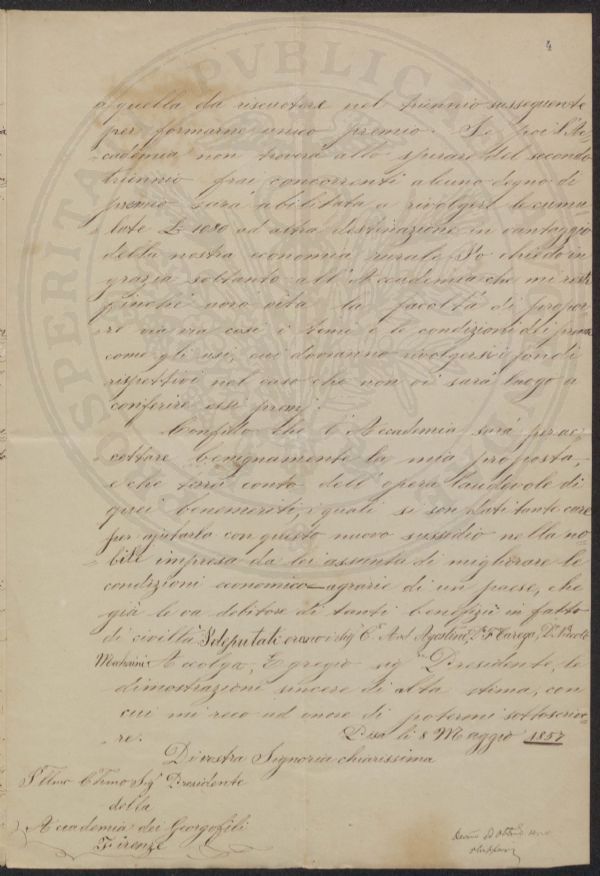 4
a quella da riscuotere nel triennio susseguente
per formarne unico premio. Se poi l'Ac-
cademia non troverà allo spirare del secondo
triennio frai concorrenti alcuno degno di
premio sarà abilitata a rivolgere le cumu
late L. 1080 ad altra destinazione in vantaggio
della nostra economia rurale. Io chiedo in
grazia soltanto all'Accademia che mi resti
finchè avrò vita la facoltà di propor-
re via via così i temi e le condizioni dei premj
come gli usi, cui dovranno rivolgersi i fondi
rispettivi nel caso che non vi sarà luogo a
conferire essi premj.
Confido che l'Accademia sarà per ac-
cettare benignamente la mia proposta,
e che terrà conto dell'opera laudevole di
quei benemeriti, i quali si son dati tante cure
per ajutarla con questo nuovo sussidio nella no
bile impresa da lei assunta di migliorare le
condizioni economico-agrarie di un paese, che
già le va debitore di tanti benefizii in fatto
di civiltà. I deputati erano i Sig.ri C.e Agostini, F. Carega, D.r
Accolga, Egregio sig.r Presidente, le
dimostrazioni sincere di alta stima, con
cui mi reco ad onore di potermi sottoscrive
re.
Pisa li 8 Maggio 1857
Di vostra Signoria chiarissima
Ill.mo C.imo Sig.r Presidente
della
Accademia dei Georgofili
Firenze
PROSPERITATI PVBLICAE